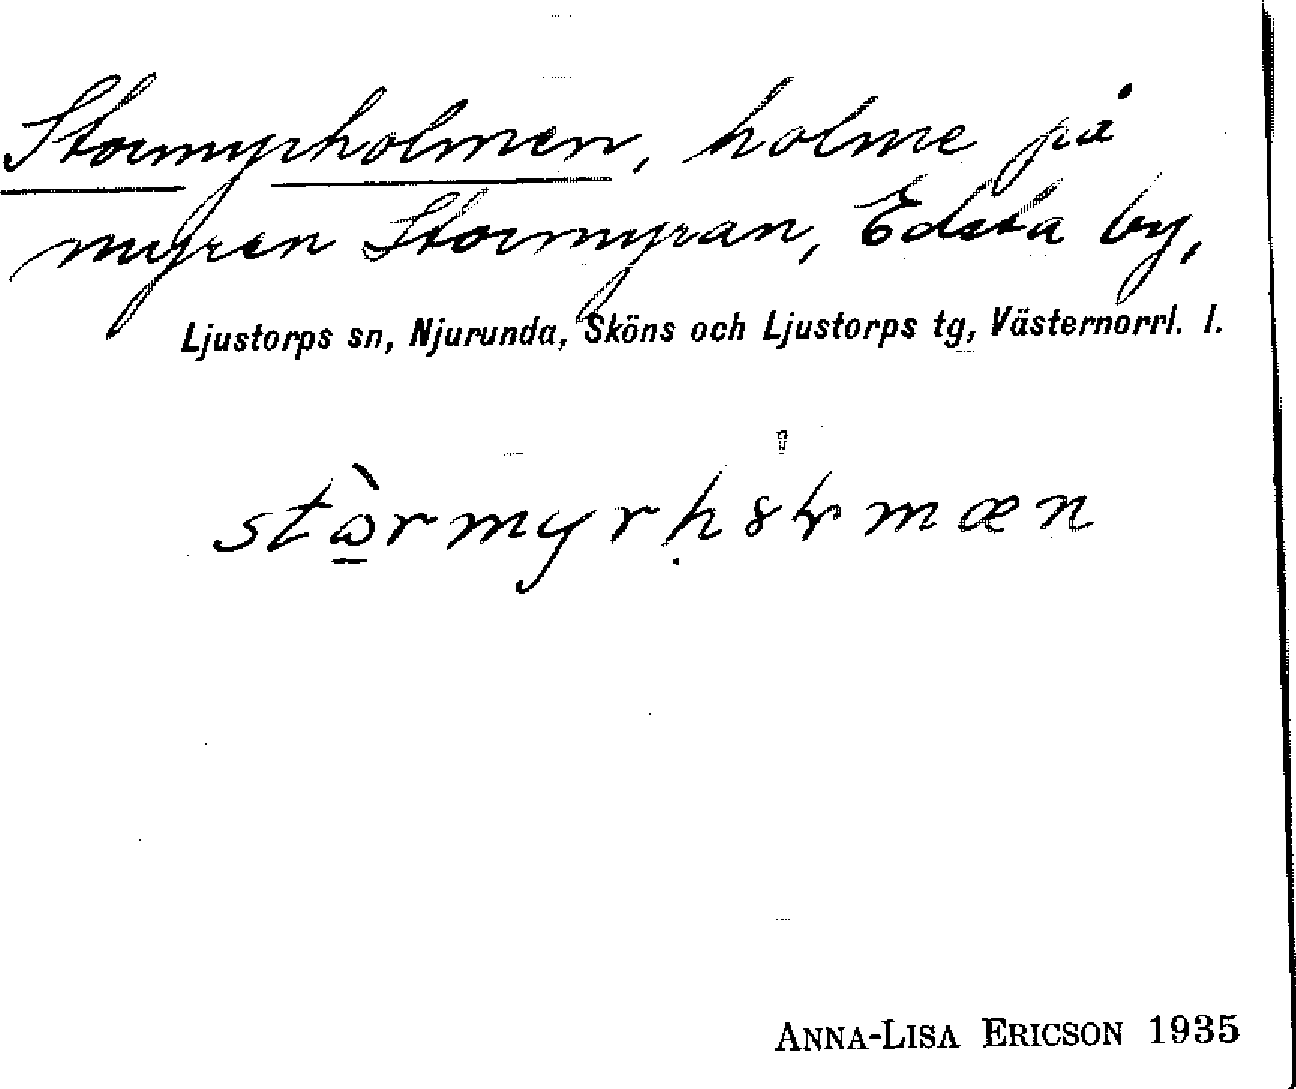 Stormyrholmen, holme på
myren Stormyran, Edsta by,
Ljustorps sn, Njurunda, Sköns och Ljustorps tg, Västernorrl. l.
ANNA-LISA ERICSON 1935